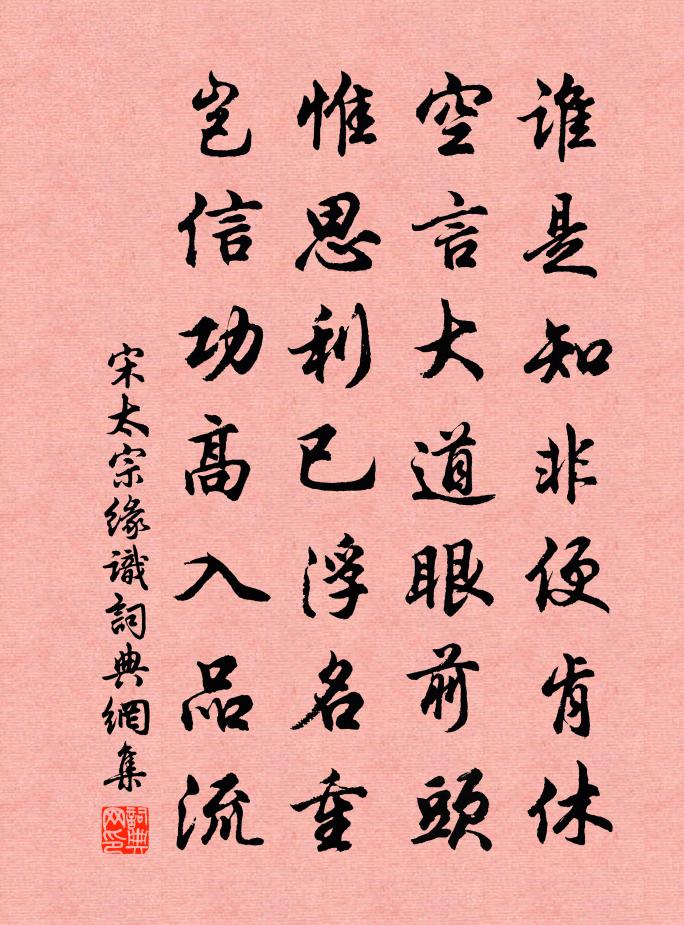 谁是知非便肯休
空言大道眼前頭
惟思利已浮名重
岂信功高入品流
宋太宗缘識詞典網集
詞典网印